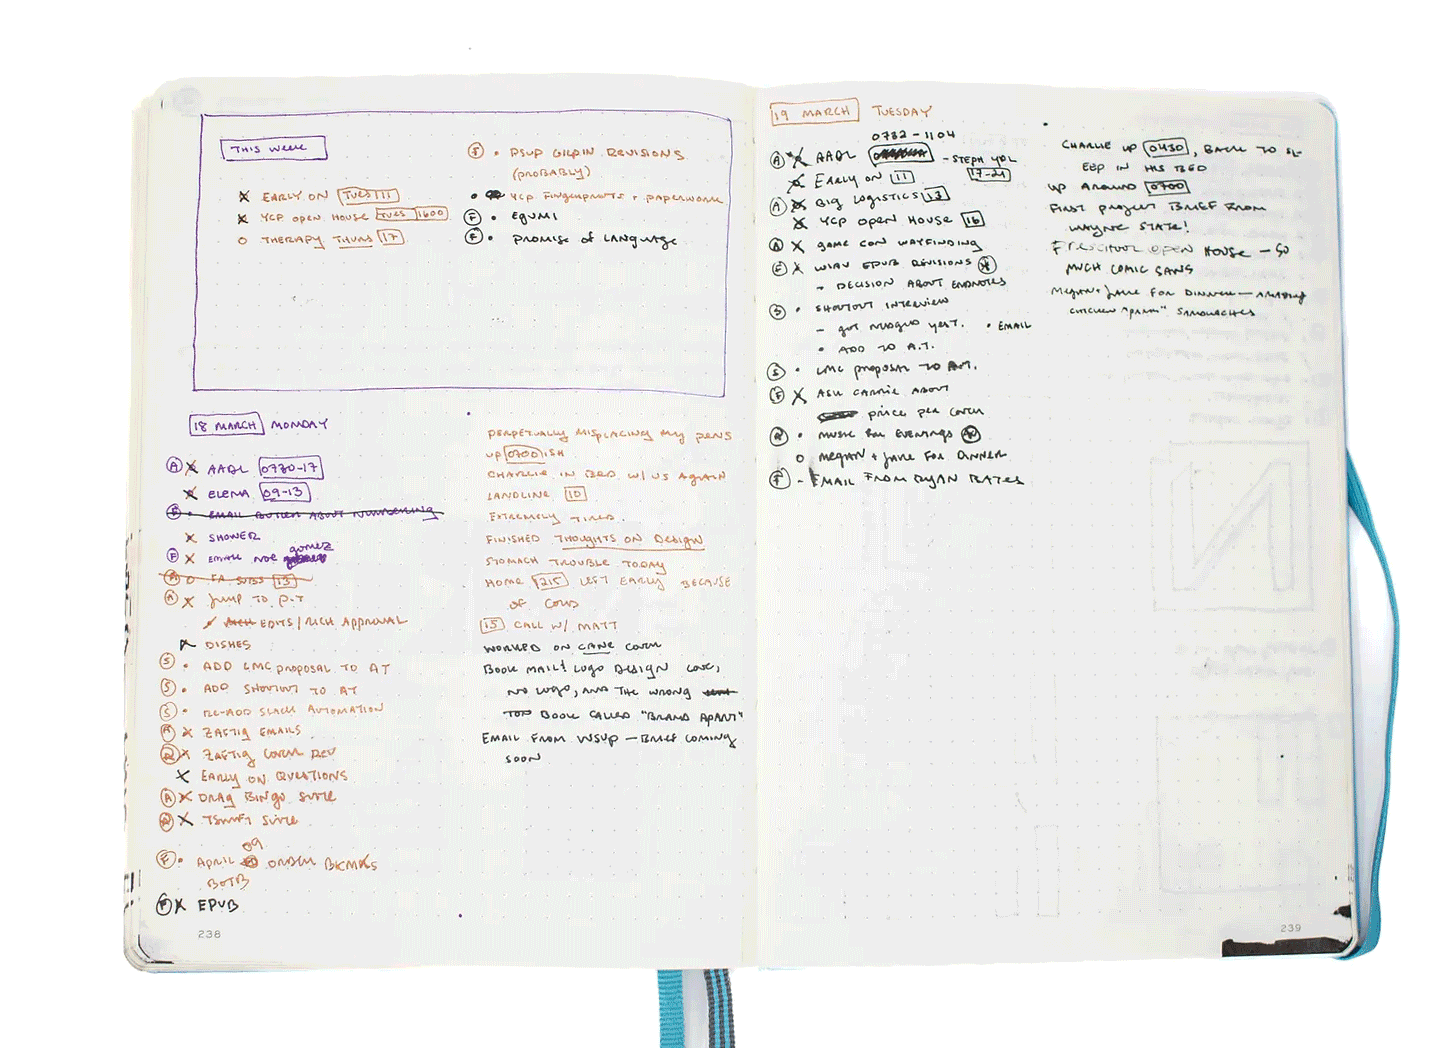 THIS WEEK
X EARLY ON TUES 11
X YCP OPEN HOUSE TUES 1600
O THERAPY THURS 17
• PSUP GILPIN REVISIONS
(PROBABLY)
• YCP FINGERPRINTS + PAPERWORK
F • EQUMI
F • PROMISE OF LANGUAGE
18 MARCH MONDAY
A X AADL 0730-17
X ELENA 09-13
F • EMAIL ABOUT NUMBERING
X SHOWER
F X EMAIL NOE GOMEZ
A O FA SUBS 13
A X JUMP TO P.T
EDITS/RICH APPROVAL
X DISHES
S • ADD LMC PROPOSAL TO AT
S • ADD SHOUTOUT TO AT
S • RE-ADD SLACK AUTOMATION
A X ZAFTIG EMAILS
A X ZAFTIG COVER DEV
X EARLY ON QUESTIONS
A X DRAG BINGO SUITE
A X TSWIFT SUITE
09
F • APRIL ORDER BKMRKS
BOTB
F X EPUB
238
PERPETUALLY MISPLACING MY PENS
UP 0700 ISH
CHARLIE IN BED W/ US AGAIN
LANDLINE 10
EXTREMELY TIRED.
FINISHED THOUGHTS ON DESIGN
STOMACH TROUBLE TODAY
HOME 1215 LEFT EARLY BECAUSE
OF COLD
15 CALL W/ MATT
WORKED ON CANE COVER
BOOK MAIL! LOGO DESIGN LOVE,
NO LOGO, AND THE WRONG
BOOK CALLED "BRAND APART"
EMAIL FROM WSUP — BRIEF COMING
SOON
19 MARCH TUESDAY
0732-1104
A X AADL - STEPH YDL
X EARLY ON 11 17-21
A X BIG LOGISTICS 13
X YCP OPEN HOUSE 16
A X GAME CON WAYFINDING
F X WIAV EPUB REVISIONS
→ DECISION ABOUT ENDNOTES
S • SHOUTOUT INTERVIEW
- GOT NUDGED YEST. • EMAIL
• ADD TO A.T.
S • LMC PROPOSAL TO A.T.
F X ASK CARRIE ABOUT
PRICE PER COVER
• MUSIC FOR EVENINGS
O MEGAN + JANE FOR DINNER
F - EMAIL FROM RYAN BATES
CHARLIE UP 0430, BACK TO SL-
EEP IN HIS BED
UP AROUND 0700
FIRST PROJECT BRIEF FROM
WAYNE STATE!
PRESCHOOL OPEN HOUSE — SO
MUCH COMIC SANS
MEGAN + JANE FOR DINNER — AMAZING
CHICKEN "PARM" SANDWICHES
239